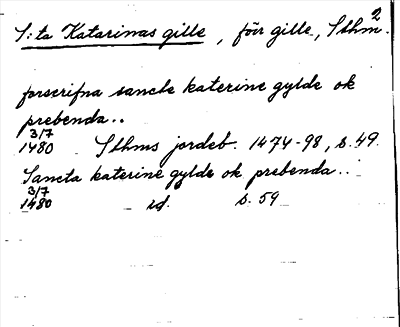 S:ta Katarinas gille, förr gille, Sthm. 2
forscrifna sancte katerine gylde ok
prebenda..
3/7
1480 Sthms jordeb. 1474-98, s. 49.
Sancta katerine gylde ok prebenda..
3/7
1480 id. s. 59